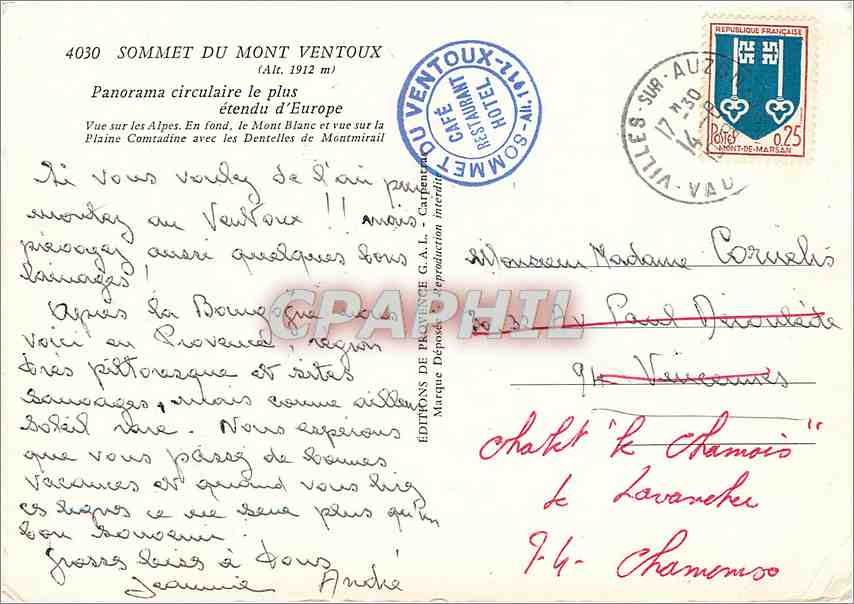 4030 SOMMET DU MONT VENTOUX
(Alt. 1912 m)
Panorama circulaire le plus
étendu d'Europe
Vue sur les Alpes. En fond, le Mont Blanc et vue sur la
Plaine Comtadine avec les Dentelles de Montmirail
Si vous voulez de l'air pur
montez au Ventoux !! mais
prévoyez aussi quelques bons
lainages !
Après la Bourgogne nous
voici en Provence, région
très pittoresque et sites
sauvages, mais comme ailleurs
soleil rare. Nous espérons
que vous passez de bonnes
vacances et quand vous lirez
ces lignes ce ne sera plus qu'un
bon souvenir.
Grosses bises à tous
Jeannine André
SOMMET DU VENTOUX-1912
CAFÉ
RESTAURANT
HOTEL
ÉDITIONS DE PROVENCE G.A.L. - Carpentras
Marque Déposée - Reproduction interdite
VILLES-SUR-AUZON
17 H 30
14
VAU
REPUBLIQUE FRANÇAISE
POSTES 0,25
MONT-DE-MARSAN
Monsieur Madame Cornelis
Av Paul Déroulède
94 Vincennes
Chalet "le Chamois"
Le Lavancher
74- Chamonix
CPARPHIL